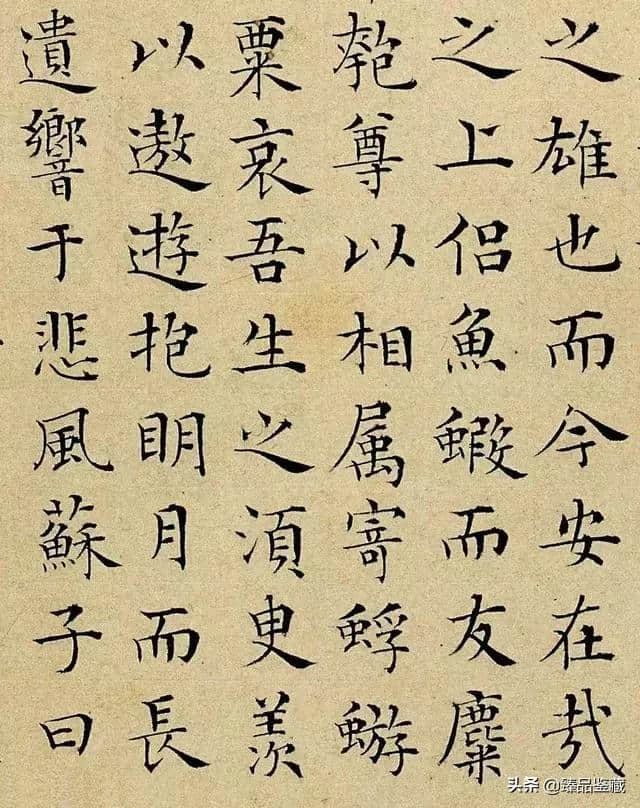 之雄也而今安在哉
之上侣魚蝦而友麋
匏尊以相属寄蜉蝣
粟哀吾生之須臾羨
以遨遊抱明月而長
遺響于悲風蘇子曰
头条 @臻品鉴藏